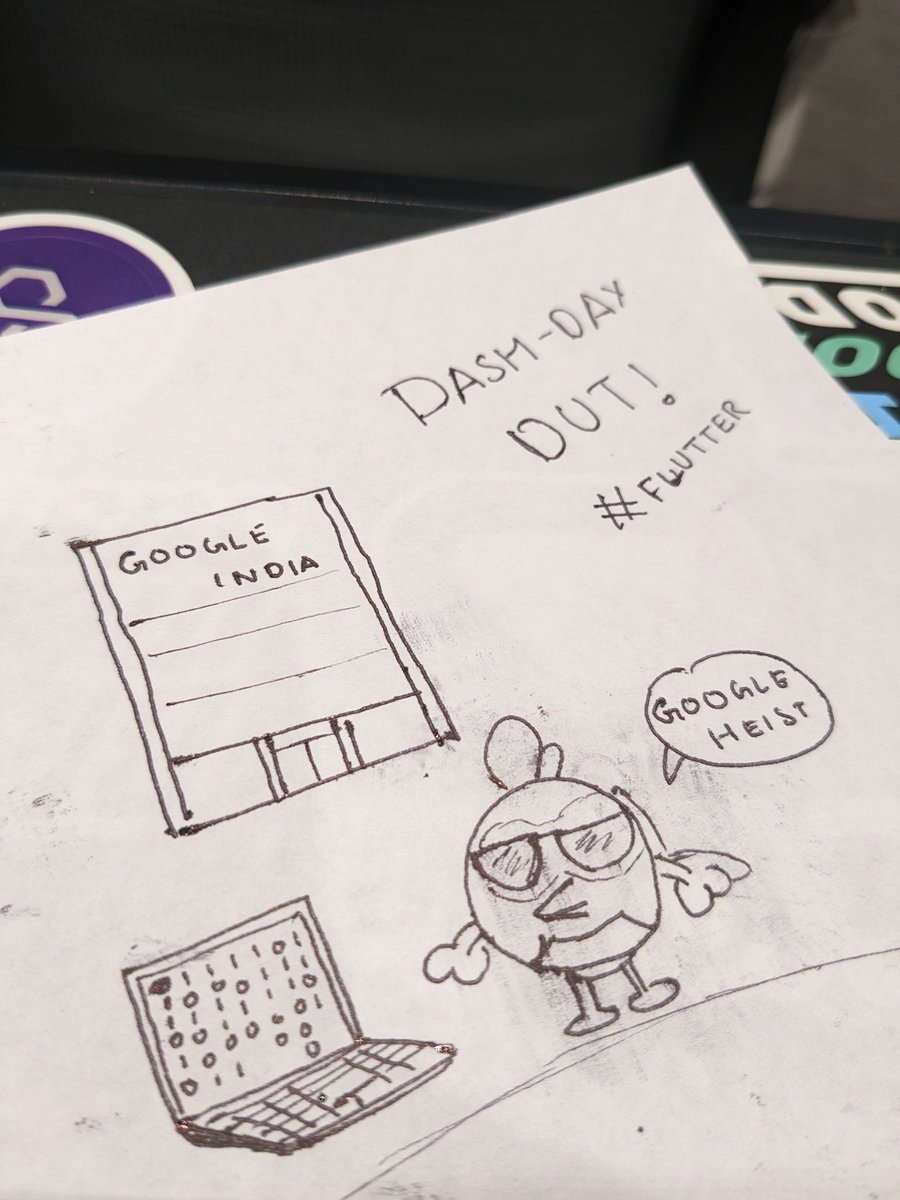 DASH-DAY
OUT!
#FLUTTER
GOOGLE
INDIA
GOOGLE
HEIST